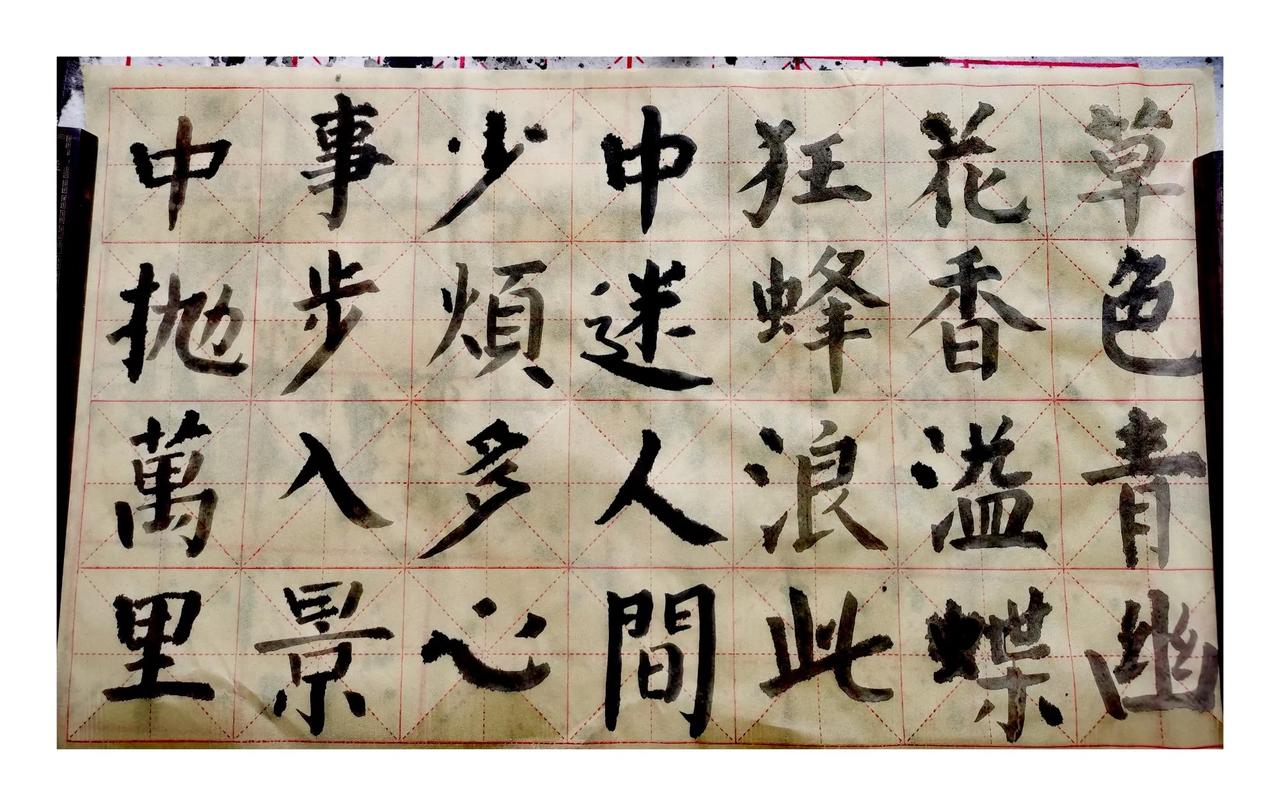 草色青幽
花香溢蝶
狂蜂浪此
中迷人間
少煩多心
事步入景
中拋萬里